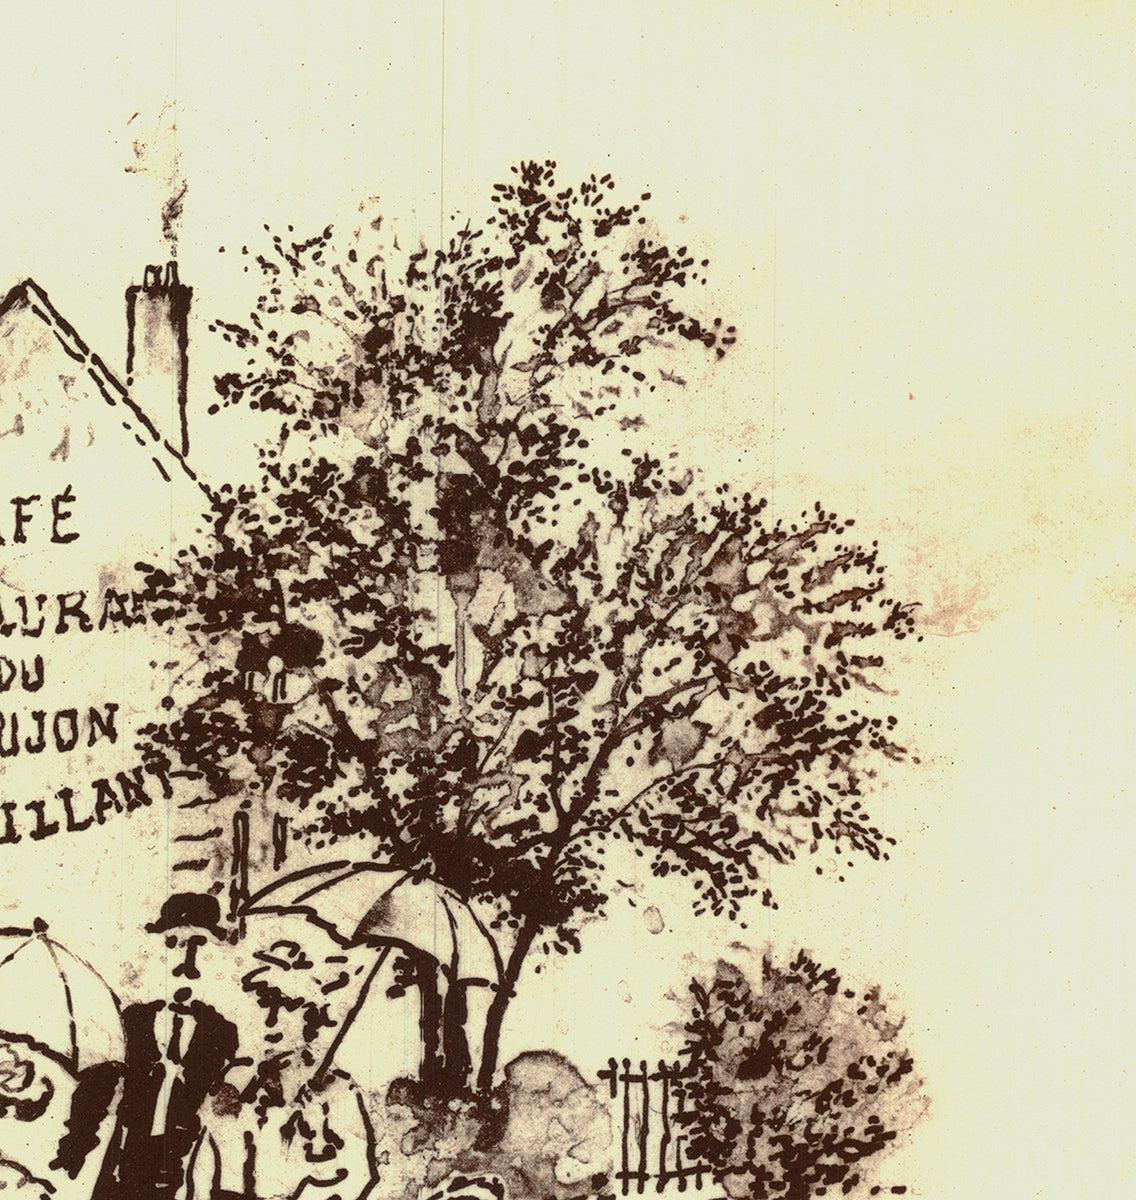 AFÉ
AURAN
DU
UJON
ILLANT